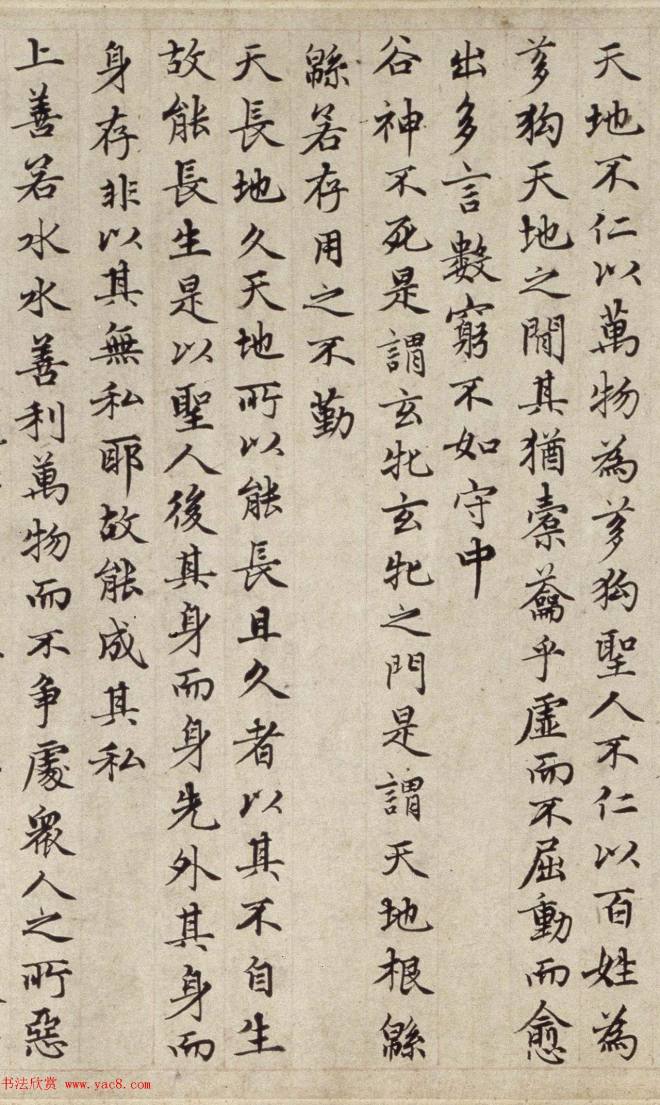 天地不仁以萬物為芻狗聖人不仁以百姓為
芻狗天地之間其猶橐籥乎虛而不屈動而愈
出多言數窮不如守中
谷神不死是謂玄牝玄牝之門是謂天地根緜
緜若存用之不勤
天長地久天地所以能長且久者以其不自生
故能長生是以聖人後其身而身先外其身而
身存非以其無私耶故能成其私
上善若水水善利萬物而不爭處衆人之所惡
书法欣赏 www.yac8.com